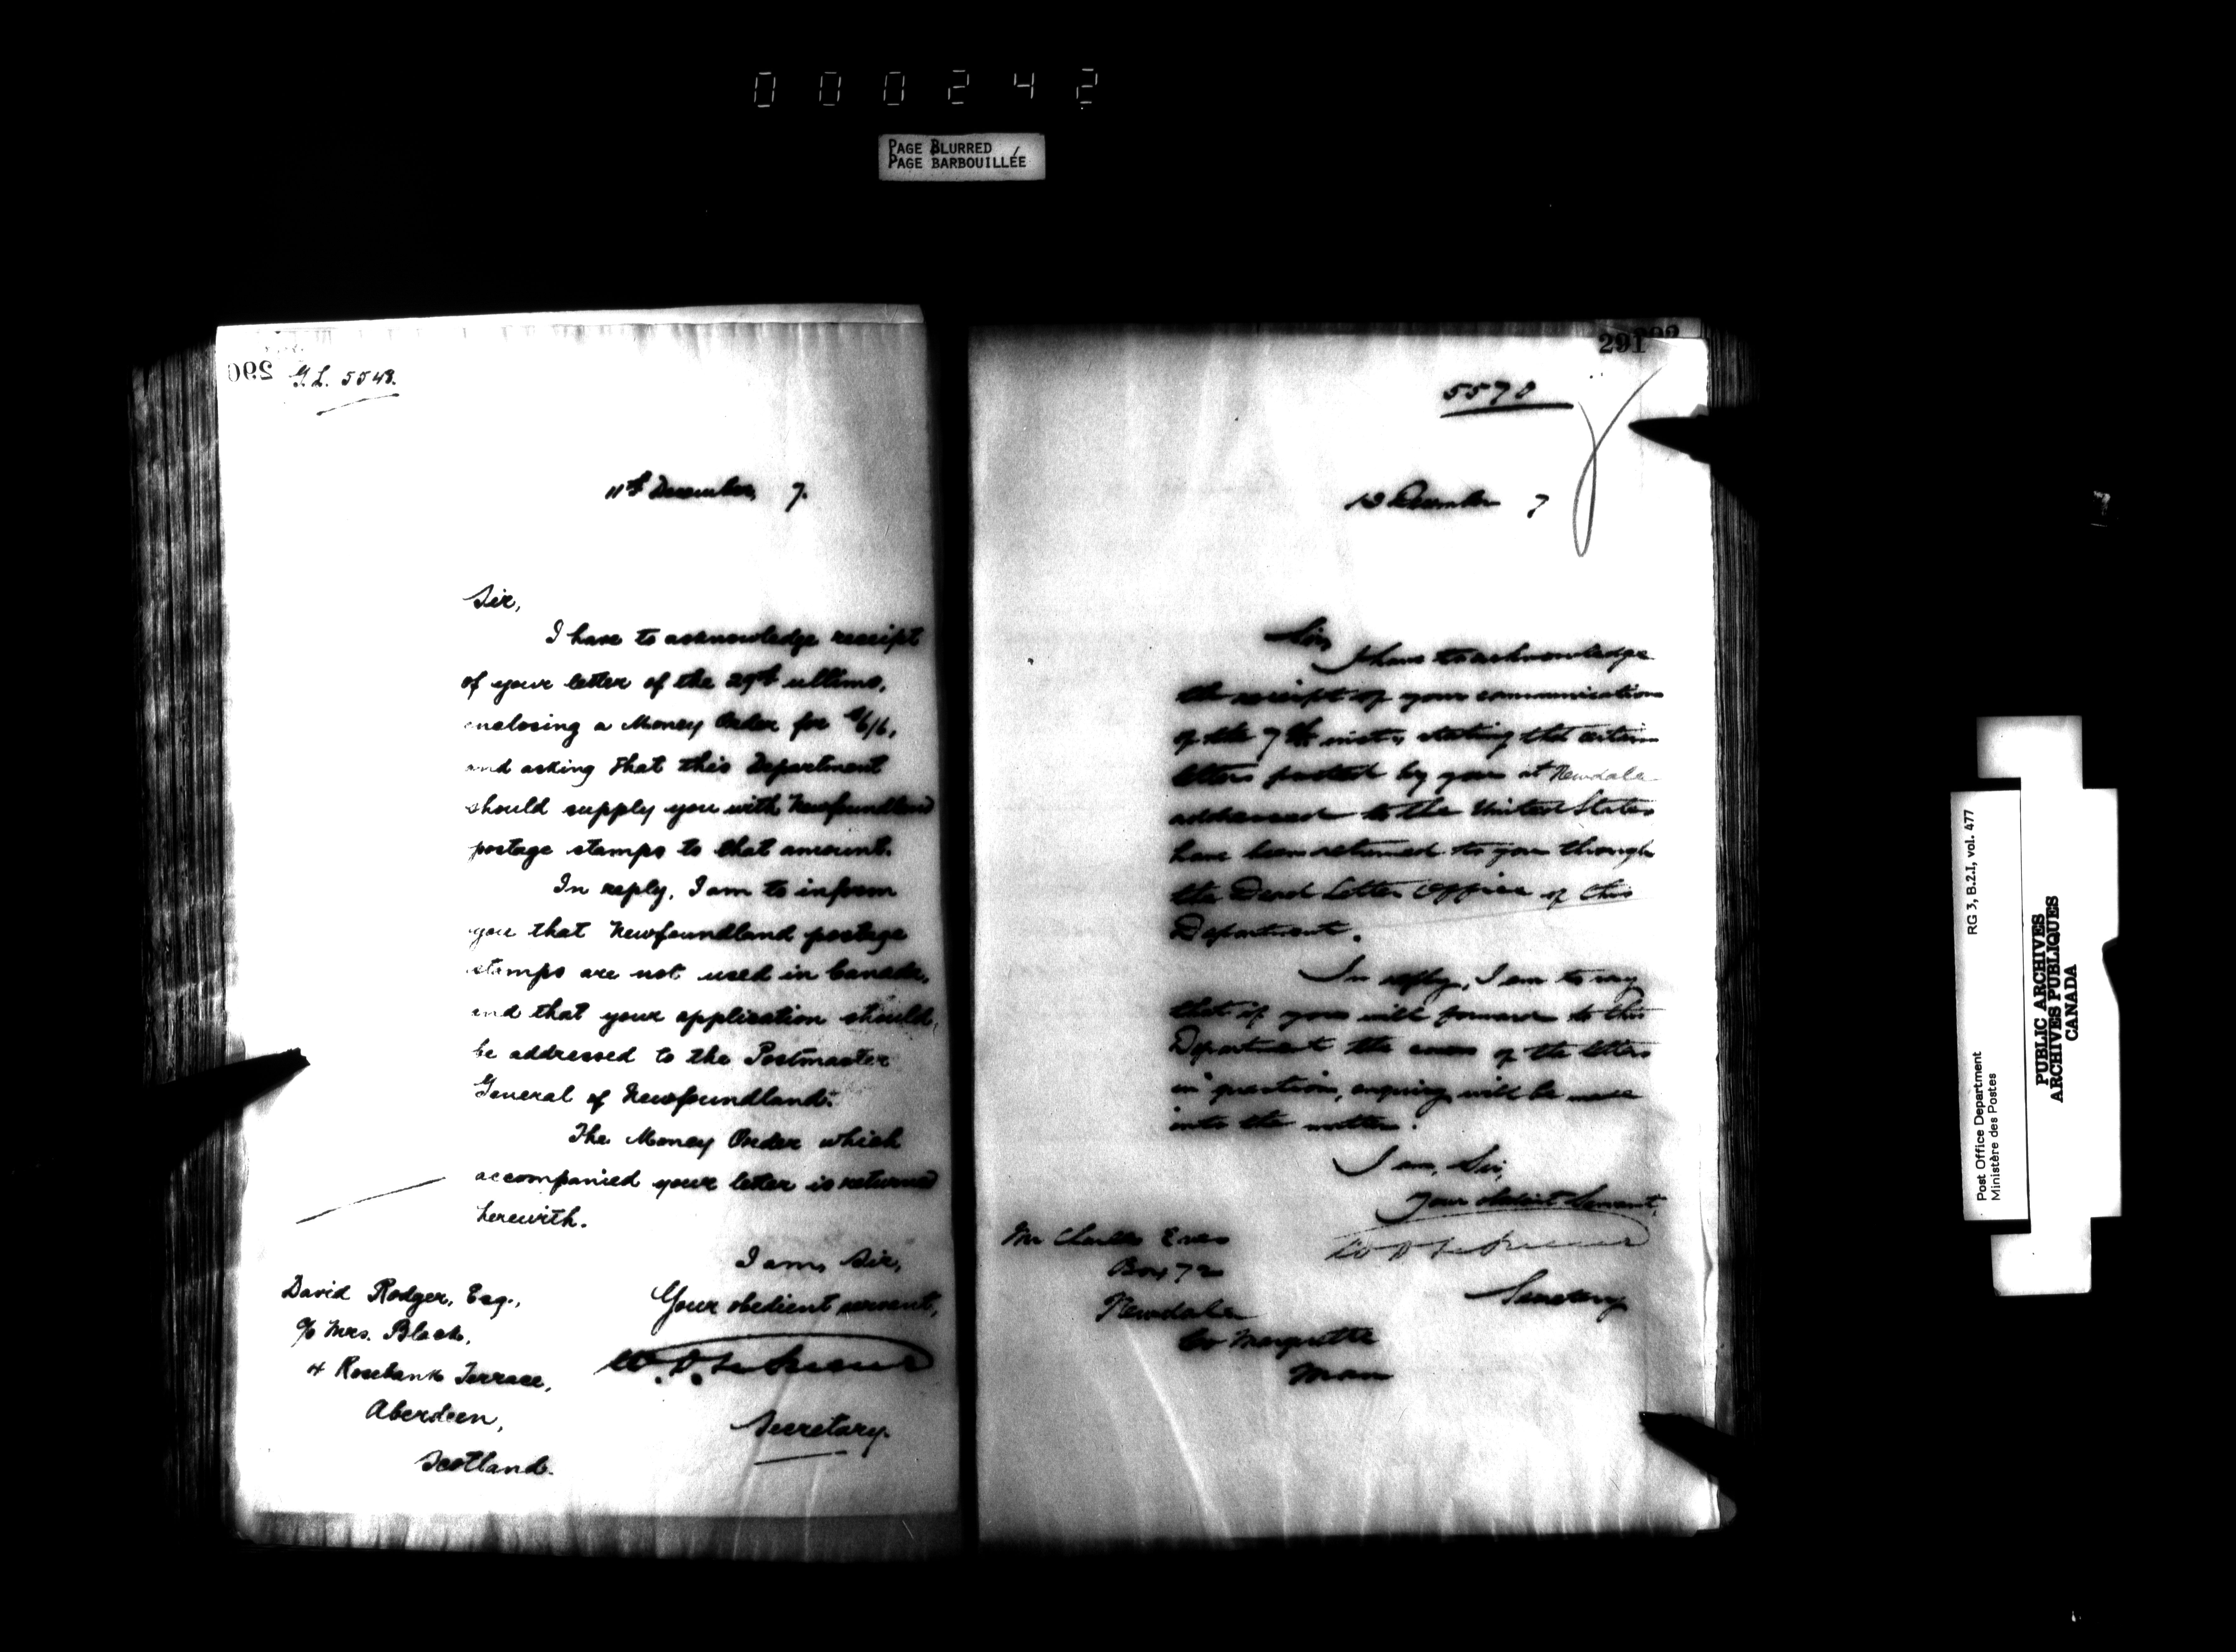 000242
PAGE BLURRED
PAGE BARBOUILLÉE
290
G.L. 5548.
11th December, 7.
Sir,
I have to acknowledge receipt
of your letter of the 29th ultimo,
enclosing a Money Order for
and asking that this Department
should supply you with Newfoundland
postage stamps to that amount.
In reply, I am to inform
you that Newfoundland postage
stamps are not used in Canada,
and that your application should,
be addressed to the Postmaster
General of Newfoundland.
The Money Order which
accompanied your letter is returned
herewith.
I am, Sir,
Your obedient servant,
Secretary.
David Rodger, Esq.,
c/o Mrs. Black,
4 Rosebank Terrace,
Aberdeen,
Scotland.
291
5570
December 7
Sir,
I have to acknowledge
the receipt of your communication
of the 7th inst, stating that certain
letters posted by you at Newdale
addressed to the United States
have been returned to you through
the Dead Letter Office of this
Department.
In reply, I am to say
that if you will forward to this
Department the covers of the letters
in question, enquiry will be made
into the matter.
I am, Sir,
Your obedient Servant,
Secretary
Mr Charles
Box 72
Newdale
Co Marquette
Man
Post Office Department
Ministère des Postes
RG 3, B.2.I, vol. 477
PUBLIC ARCHIVES
ARCHIVES PUBLIQUES
CANADA